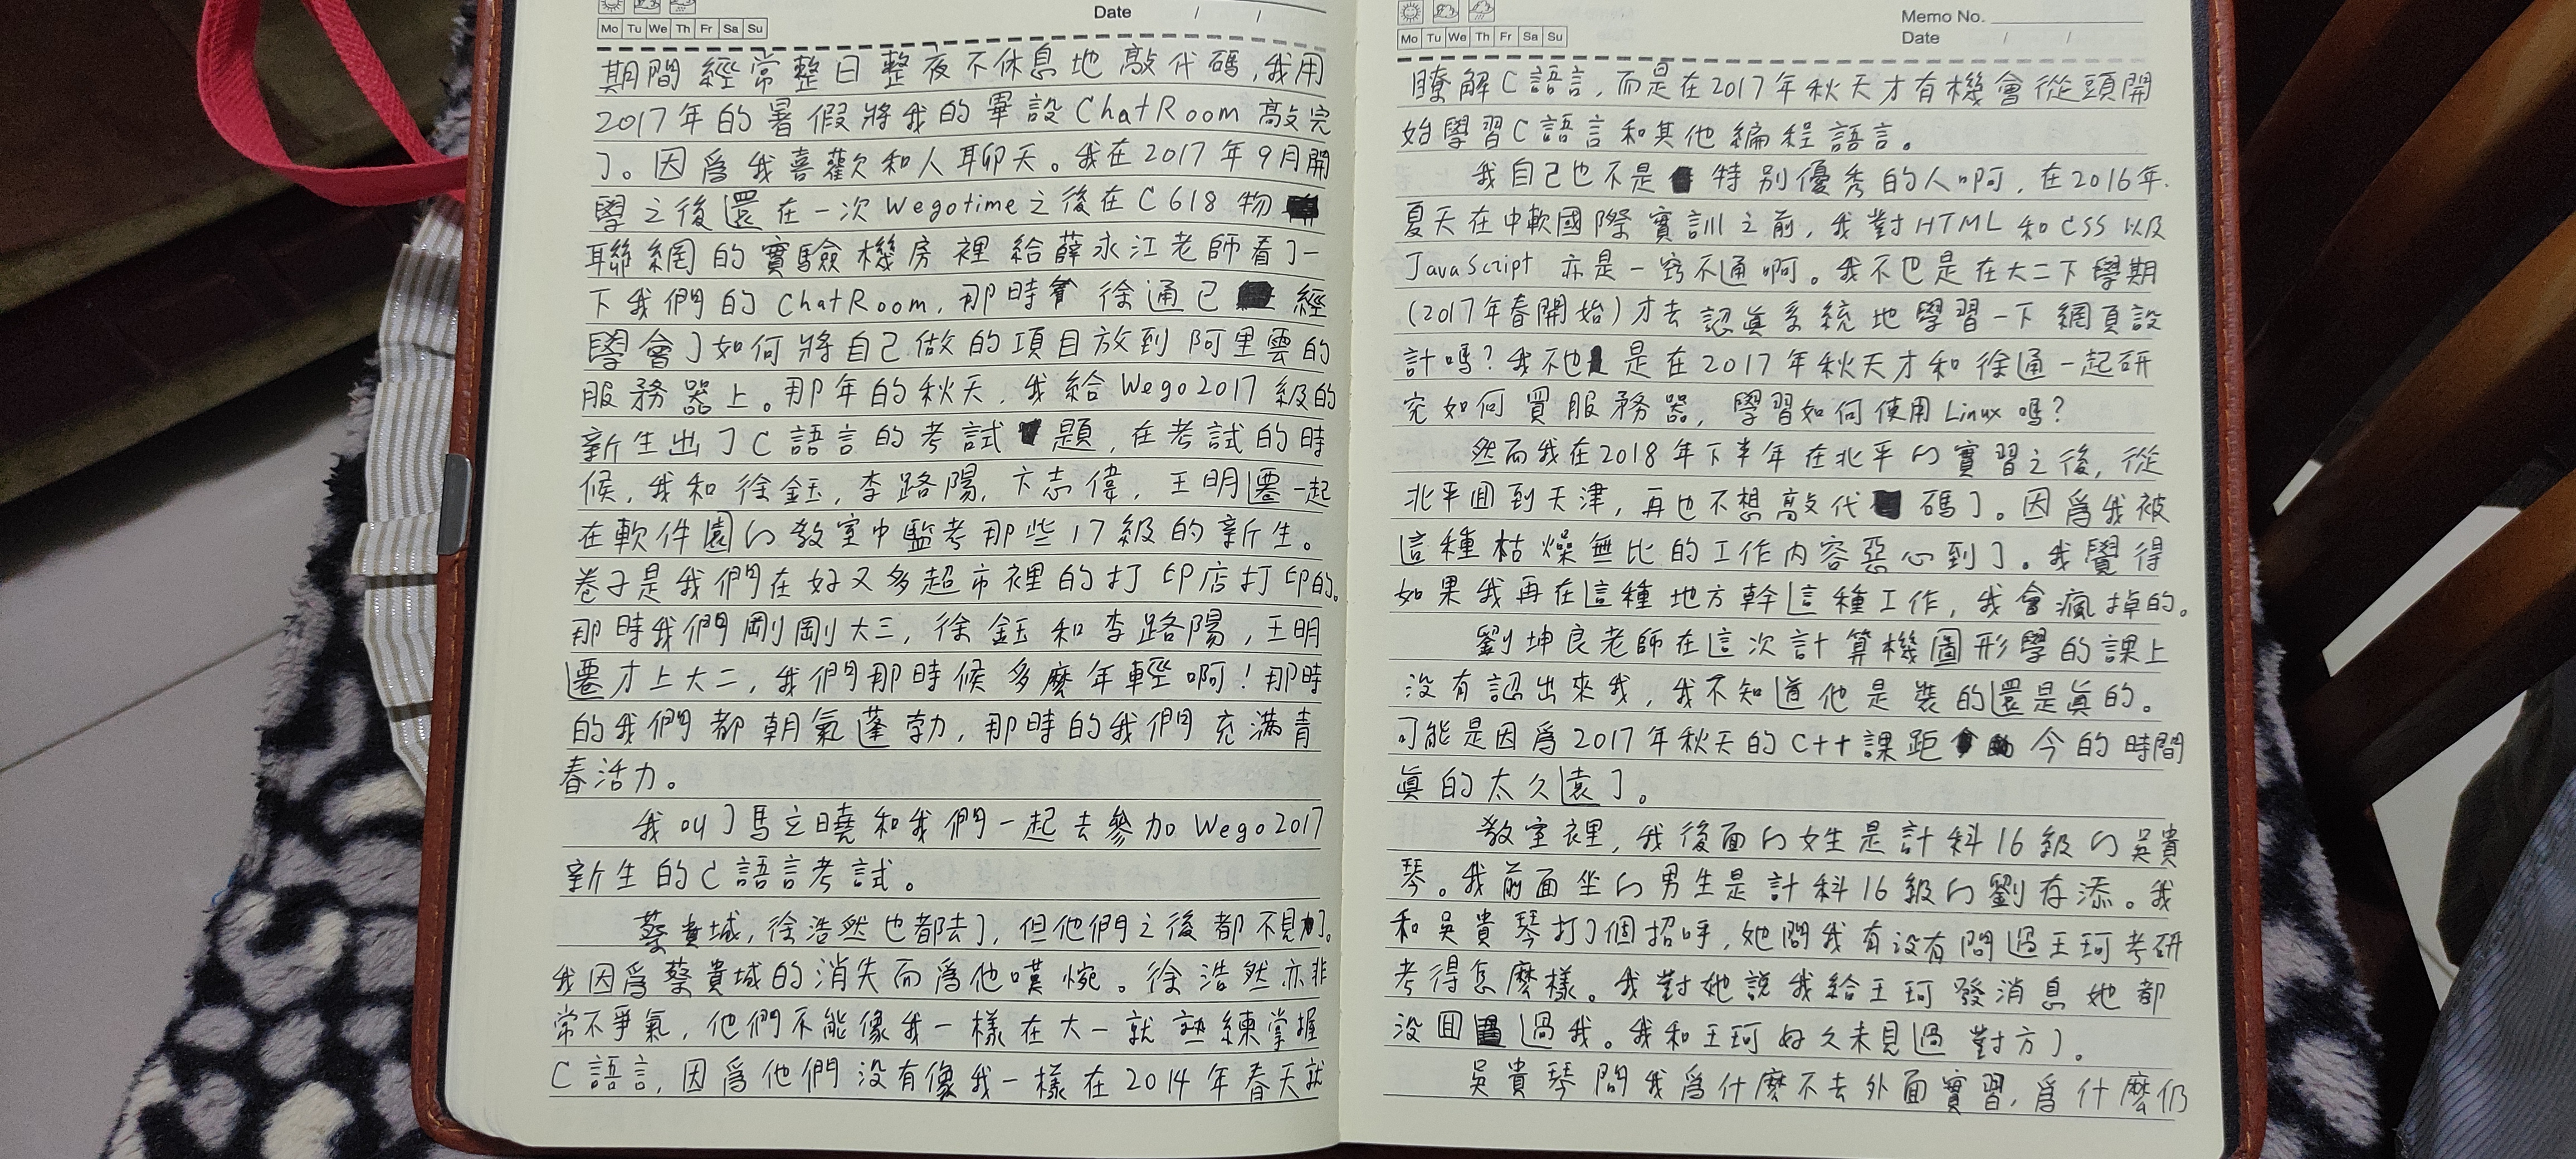 Date / /
Mo Tu We Th Fr Sa Su
期間經常整日整夜不休息地敲代碼,我用
2017年的暑假將我的畢設ChatRoom敲完
了。因爲我喜歡和人聊天。我在2017年9月開
學之後還在一次Wegotime之後在C618物
聯網的實驗機房裡給薛永江老師看了一
下我們的ChatRoom,那時 徐通已 經
學會了如何將自己做的項目放到阿里雲的
服務器上。那年的秋天,我給Wego2017級的
新生出了C語言的考試 題,在考試的時
候,我和徐鈺,李路陽,卞志偉,王明遷一起
在軟件園的教室中監考那些17級的新生。
卷子是我們在好又多超市裡的打印店打印的。
那時我們剛剛大三,徐鈺和李路陽,王明
遷才上大二,我們那時候多麼年輕啊!那時
的我們都朝氣蓬勃,那時的我們充滿青
春活力。
我叫了馬立曉和我們一起去參加Wego2017
新生的C語言考試。
蔡貴城,徐浩然也都去了,但他們之後都不見了。
我因爲蔡貴城的消失而爲他嘆惋。徐浩然亦非
常不爭氣,他們不能像我一樣在大一就熟練掌握
C語言,因爲他們没有像我一樣在2014年春天就
Memo No.
Mo Tu We Th Fr Sa Su
Date / /
瞭解C語言,而是在2017年秋天才有機會從頭開
始學習C語言和其他編程語言。
我自己也不是 特別優秀的人啊,在2016年
夏天在中軟國際實訓之前,我對HTML和CSS以及
JavaScript亦是一竅不通啊。我不也是在大二下學期
(2017年春開始)才去認眞系統地學習一下網頁設
計嗎?我不也 是在2017年秋天才和徐通一起研
究如何買服務器,學習如何使用Linux嗎?
然而我在2018年下半年在北平的實習之後,從
北平囬到天津,再也不想敲代 碼了。因爲我被
這種枯燥無比的工作內容惡心到了。我覺得
如果我再在這種地方幹這種工作,我會瘋掉的。
劉坤良老師在這次計算機圖形學的課上
没有認出來我,我不知道他是裝的還是眞的。
可能是因爲2017年秋天的C++課距 今的時間
眞的太久遠了。
教室裡,我後面的女生是計科16級的吳貴
琴。我前面坐的男生是計科16級的劉存添。我
和吳貴琴打了個招呼,她問我有没有問過王珂考研
考得怎麼樣。我對她說我給王珂發消息她都
没囬 過我。我和王珂好久未見過對方了。
吳貴琴問我爲什麼不去外面實習,爲什麼仍